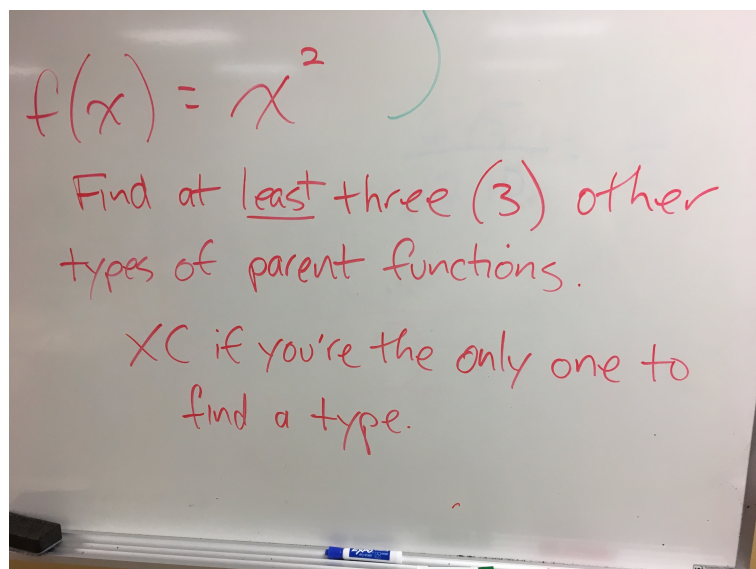 f(x) = x²
Find at least three (3) other
types of parent functions.
XC if you're the only one to
find a type.
expo